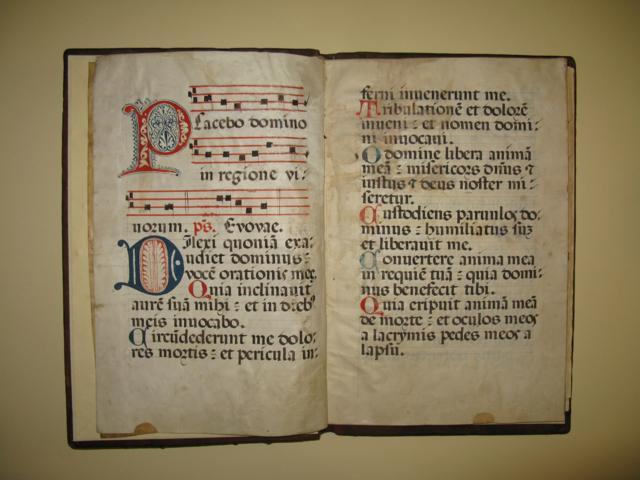 Placebo domino
in regione vi:
uorum. ps. Evovae.
Dilexi quoniā exa:
udiet dominus :
vocē orationis meę.
Quia inclinavit
aurē suā mihi : et in dieb⁹
meis invocabo.
Circūdederunt me dolo:
res mortis : et pericula in:
ferni invenerunt me.
Tribulationē et dolorē
inveni : et nomen domi:
ni invocavi.
O domine libera animā
meā : misericors dn̄us &
iustus & deus noster mi:
seretur.
Custodiens parvulos do:
minus : humiliatus suȝ
et liberavit me.
Convertere anima mea
in requiē tuā : quia domi:
nus benefecit tibi.
Quia eripuit animā meā
de morte : et oculos meos
a lacrymis pedes meos a
lapsu.